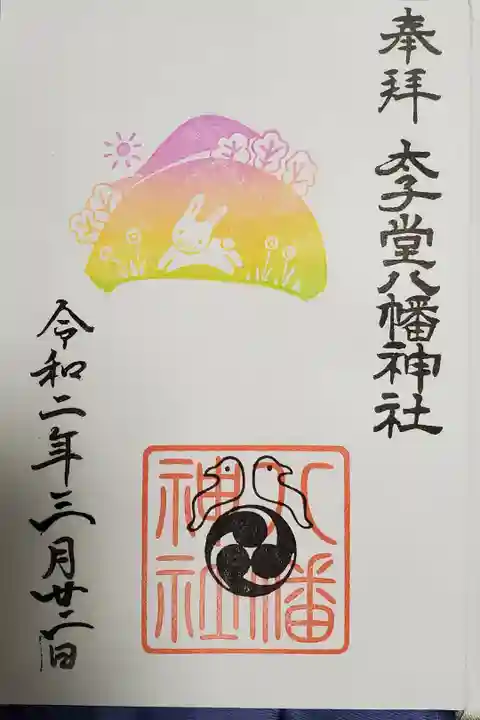 奉拝 太子堂八幡神社
八幡
神社
令和二年三月廿二日